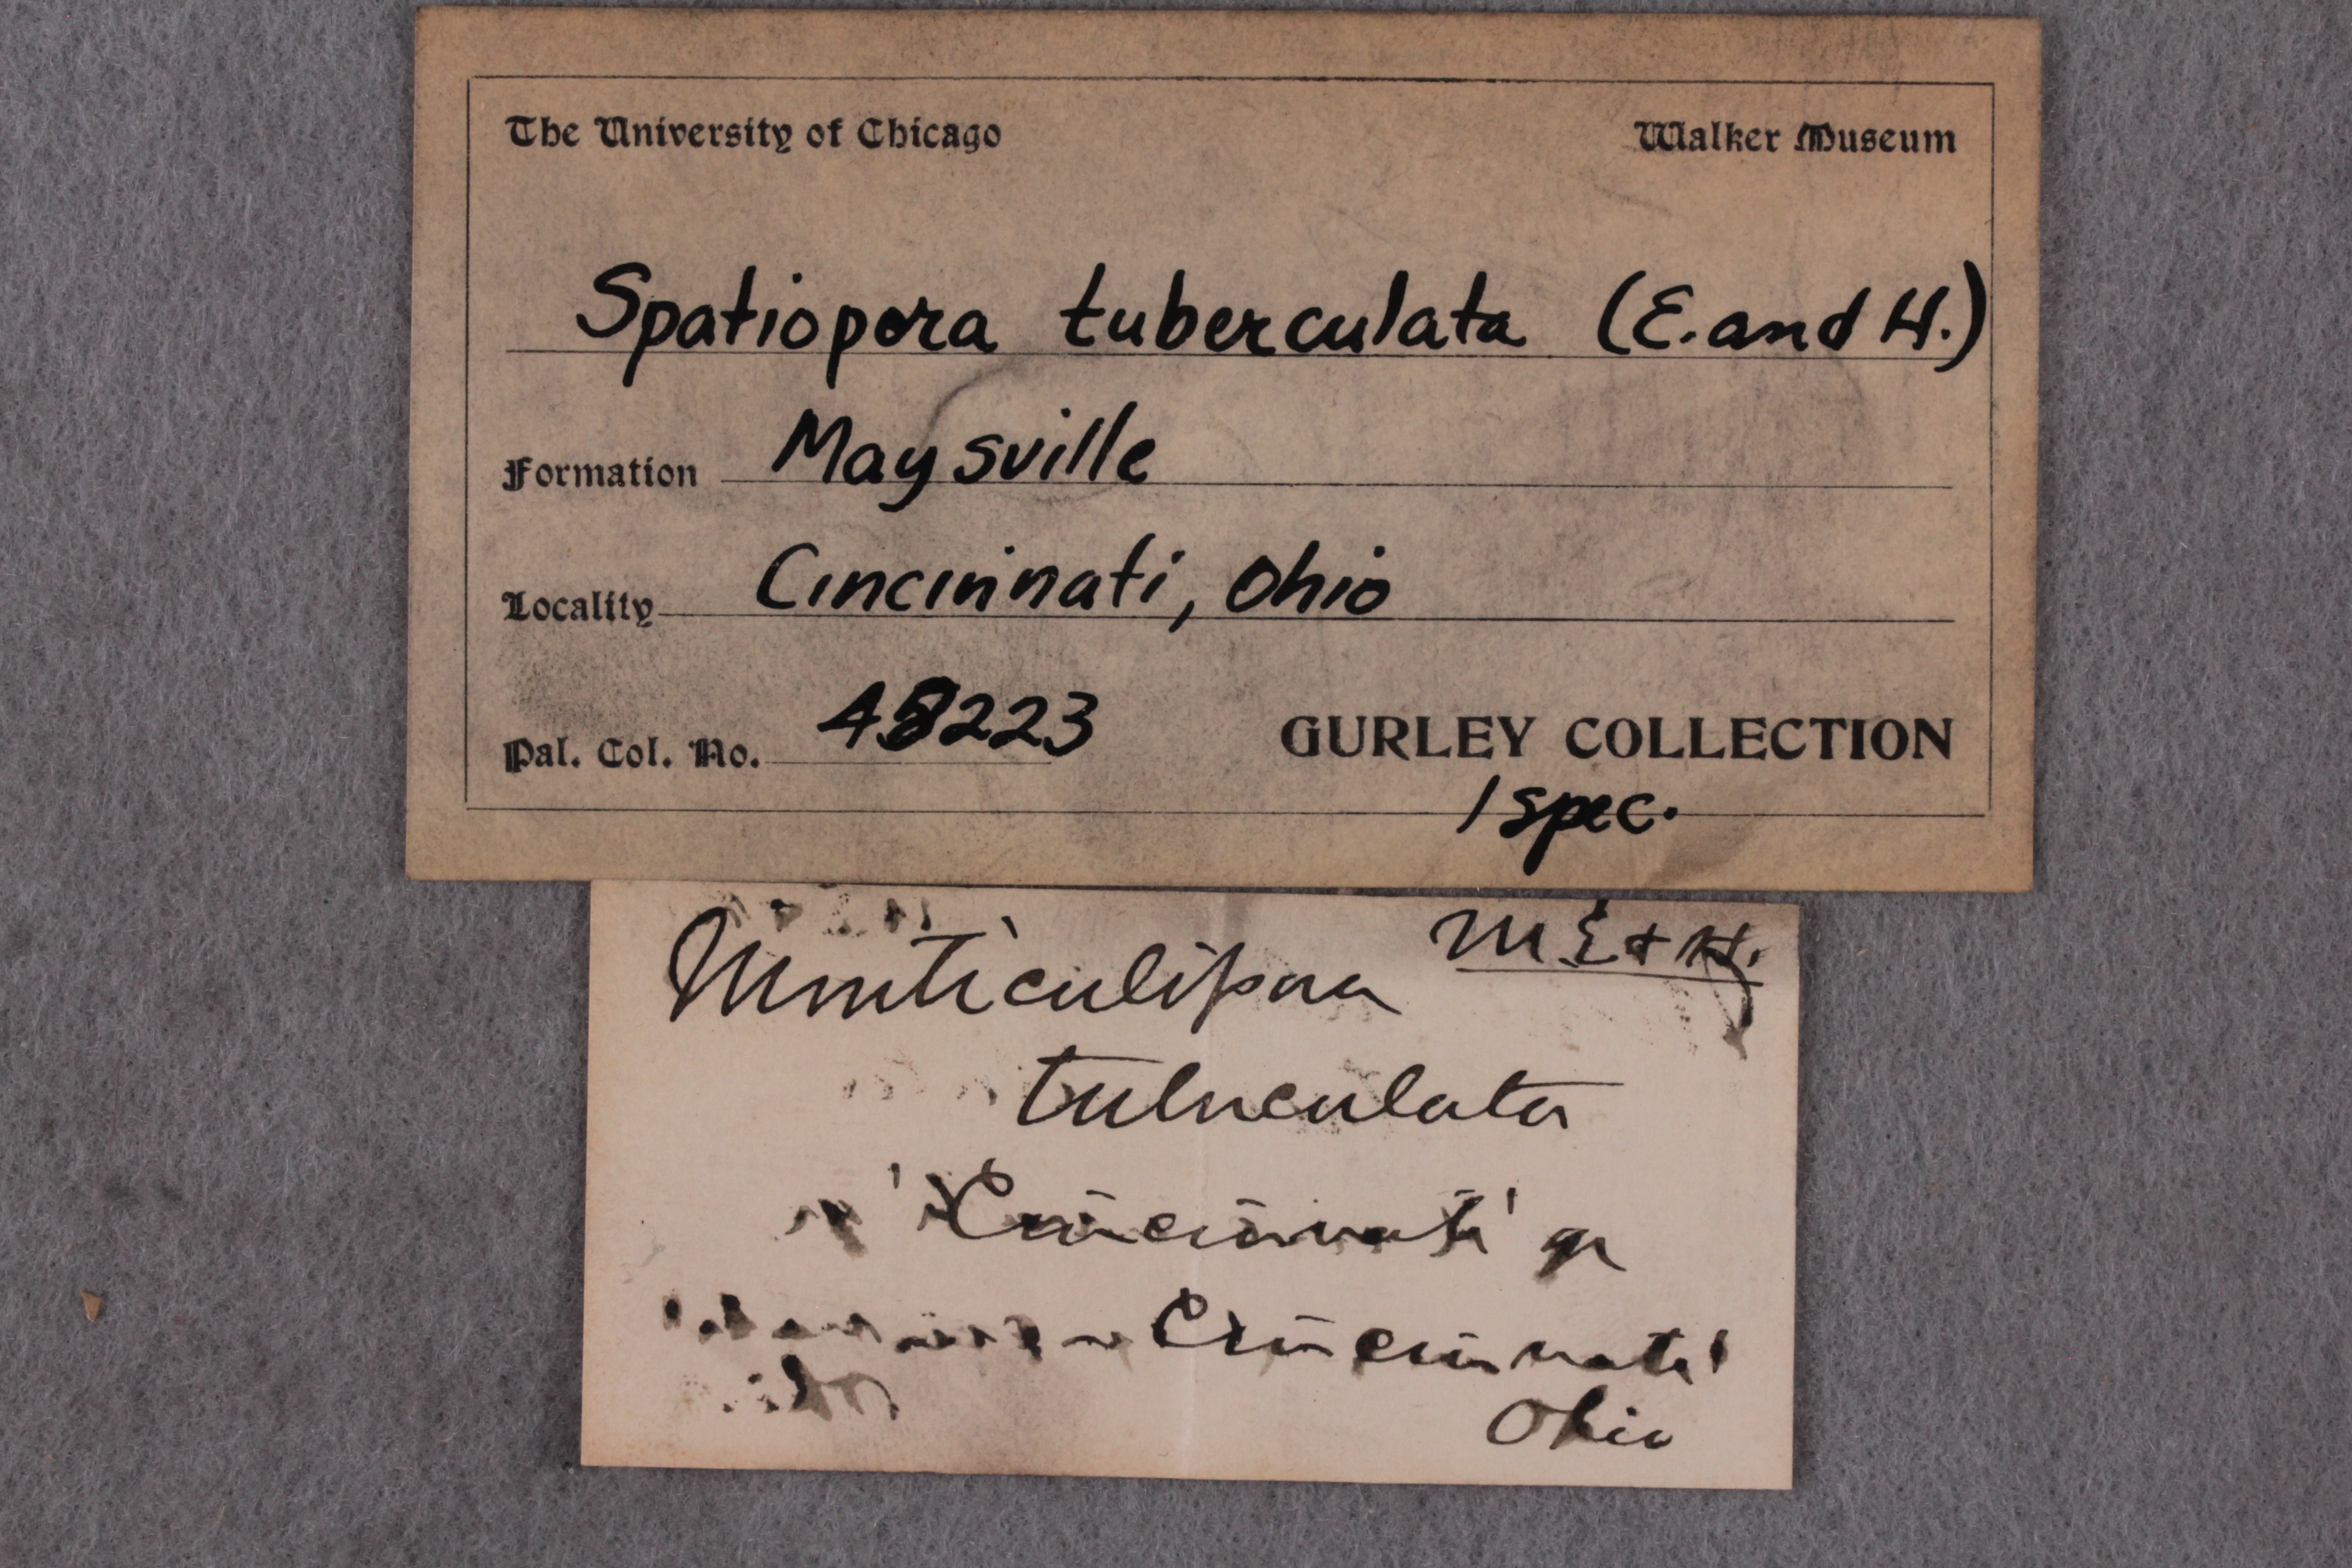 The University of Chicago Walker Museum
Spatiopora tuberculata (E. and H.)
Formation Maysville
Locality Cincinnati, Ohio
Pal. Col. No. 48223 GURLEY COLLECTION
1 spec.
Monticulipora M. E & H.
tuberculata
'Cincinnati' gr
Cincinnati
Ohio